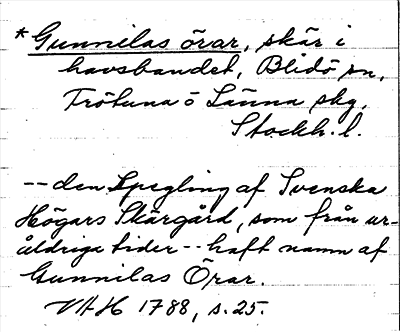 *Gunnilas örar, skär i
havsbandet, Blidö sn,
Frötuna o Länna skg,
Stockh. l.
--den Spegling af Svenska
Högars Skärgård, som från ur-
åldriga tider -- haft namn af
Gunnilas Örar.
VAH 1788, s. 25.